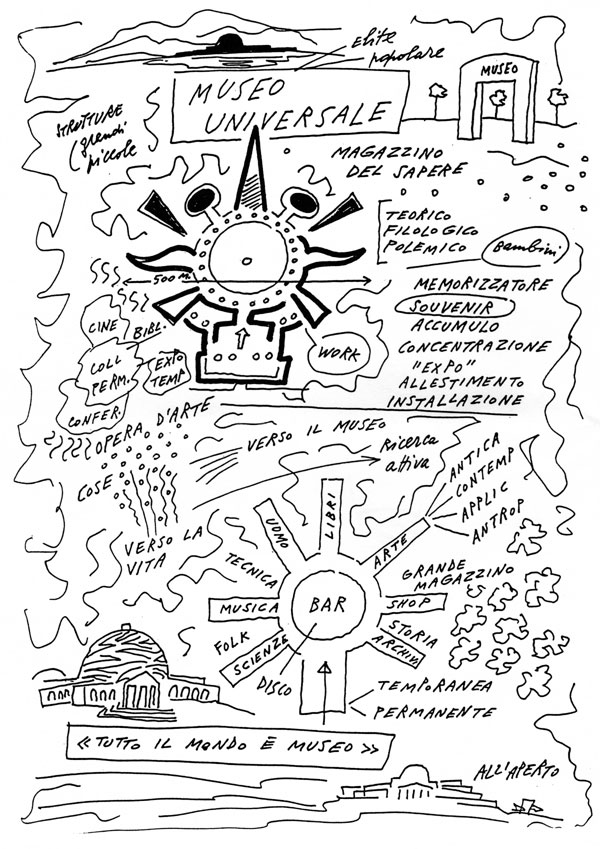 Elite
popolare
MUSEO
UNIVERSALE
MUSEO
STRUTTURE
(grandi
piccole
MAGAZZINO
DEL SAPERE
TEORICO
FILOLOGICO
POLEMICO
Bambini
500 M.
MEMORIZZATORE
SOUVENIR
ACCUMULO
CONCENTRAZIONE
"EXPO"
ALLESTIMENTO
INSTALLAZIONE
CINE
BIBL.
COLL
PERM.
EXPO
TEMP
CONFER.
WORK
OPERA D'ARTE
VERSO IL MUSEO
Ricerca
attiva
COSE
VERSO LA
VITA
ANTICA
CONTEMP
APPLIC
ANTROP
LIBRI
UOMO
ARTE
TECNICA
GRANDE
MAGAZZINO
MUSICA
BAR
SHOP
FOLK
STORIA
SCIENZE
ARCHIVI
DISCO
TEMPORANEA
PERMANENTE
«TUTTO IL MONDO È MUSEO»
ALL'APERTO